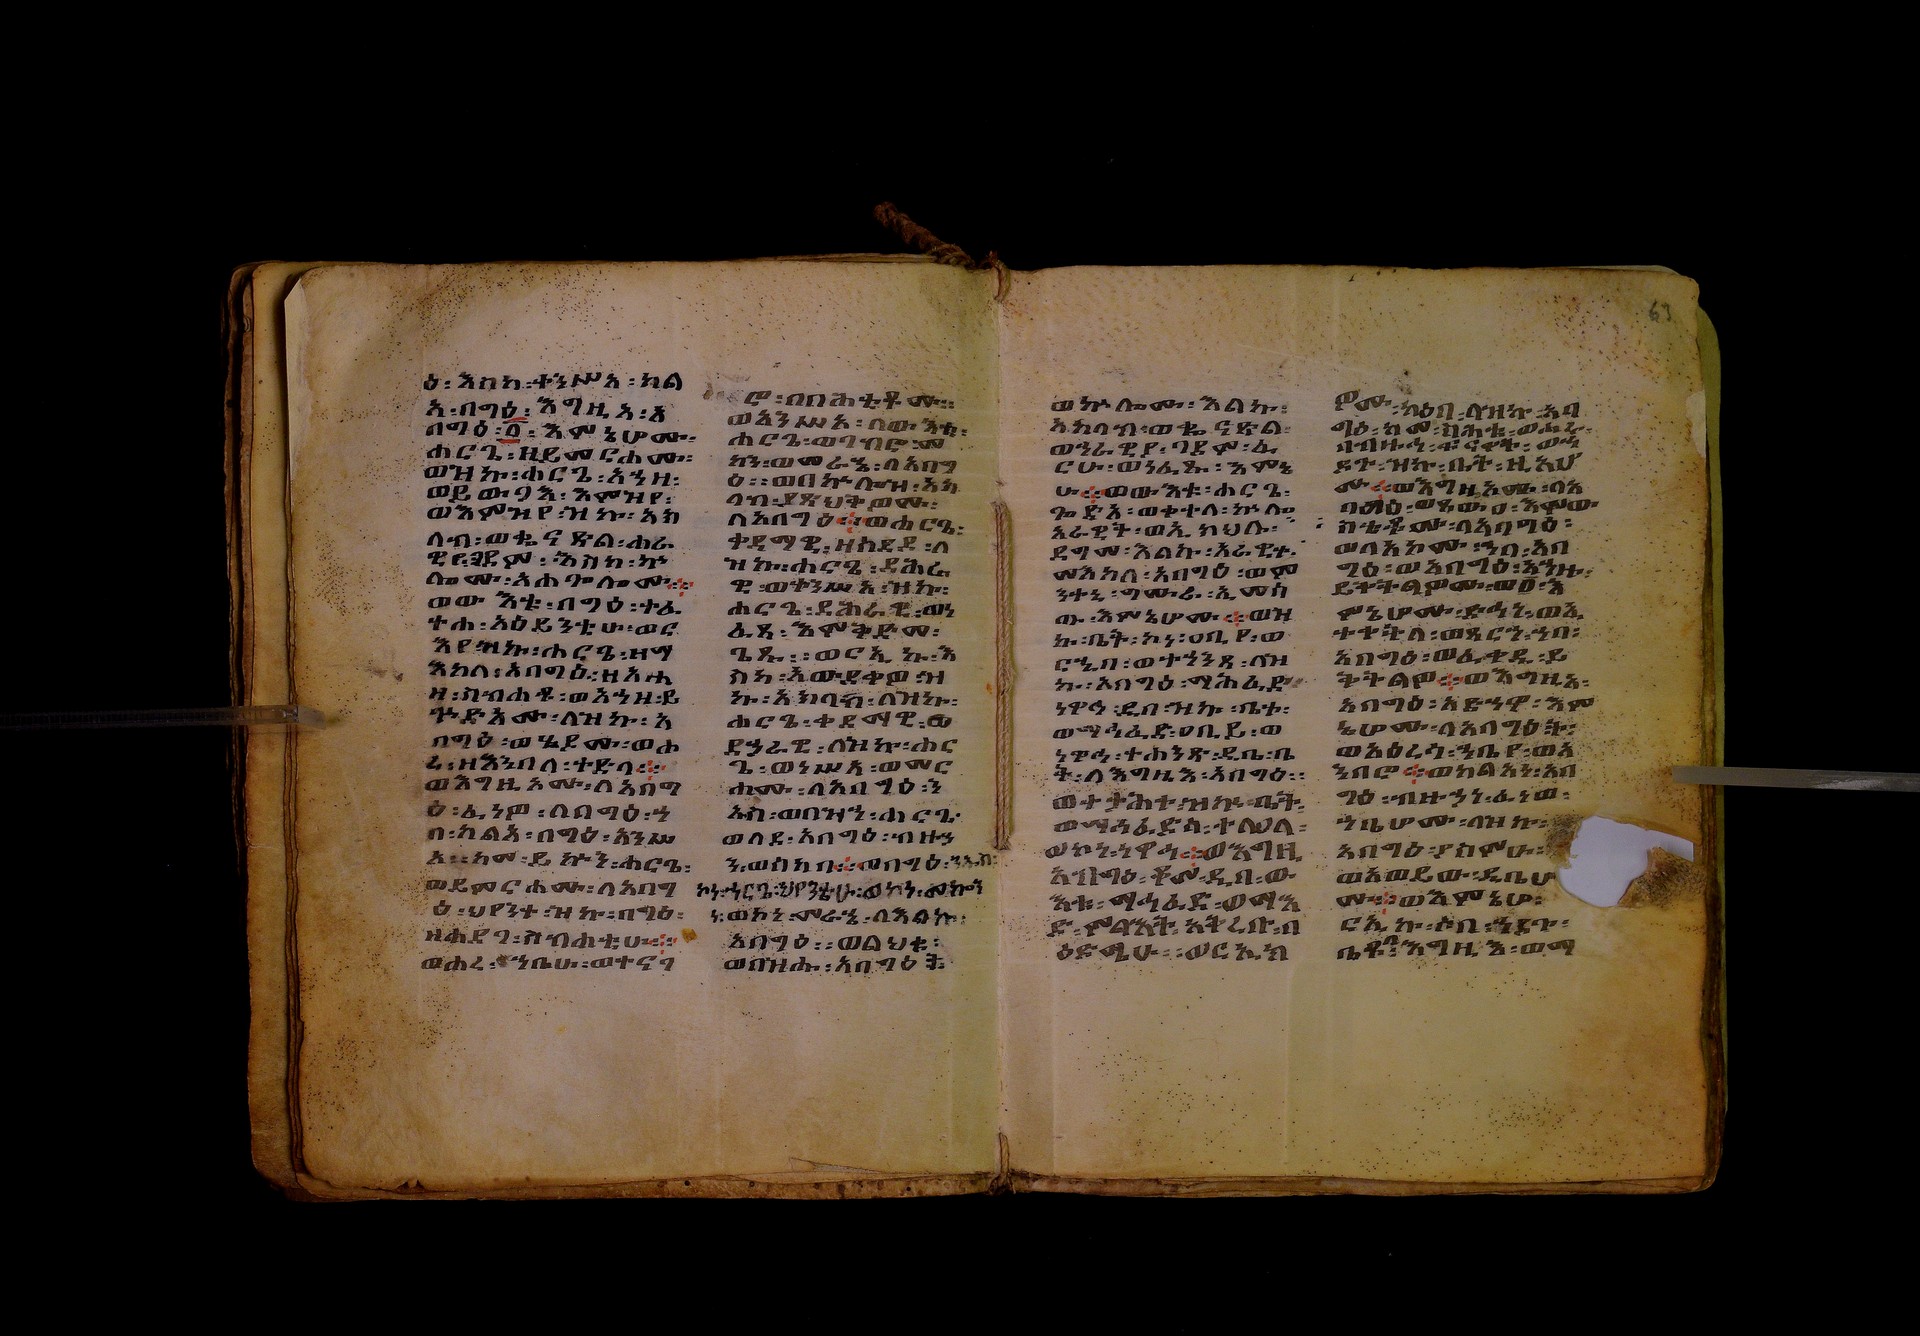 ዕ፡እስከ፡ተንሥአ፡ካል
አ፡በግዕ፡እግዚአ፡አ
በግዕ፡፩፡እምኔሆሙ፡
ሐርጌ፡ዘይመርሐሙ፡
ወዝኩ፡ሐርጌ፡አኀዘ፡
ወይውጋእ፡እምዝየ፡
ወእምዝየ፡ዝኩ፡አክ
ላብ፡ወቈናጽል፡ሐራ
ዊየ፡ገዳም፡እስከ፡ኵ
ሎሙ፡አሐጐሎሙ፡
ወውእቱ፡በግዕ፡ተፈ
ተሐ፡አዕይንቲሁ፡ወር
እየ፡ዝኩ፡ሐርጌ፡ዘማ
እከለ፡አባግዕ፡ዘአሐ
ዘ፡ስብሐቶ፡ወአኀዘ፡ይ
ጕድኦሙ፡ለዝኩ፡አ
ባግዕ፡ወኬደሙ፡ወሐ
ረ፡ዘእንበለ፡ተድላ፡
ወእግዚኦሙ፡ለአባግ
ዕ፡ፈነዎ፡ለበግዕ፡ኀ
በ፡ካልእ፡በግዕ፡አንሥ
አ፡፡ከመ፡ይኵን፡ሐርጌ፡
ወይምርሐሙ፡ለአባግ
ዕ፡ህየንተ፡ዝኩ፡በግዕ፡
ዘሐደገ፡ስብሐቲሁ፡
ወሐረ፡ኀቤሁ፡ወተናገ
ሮ፡በባሕቲቶሙ፡፡
ወአንሥአ፡ለውእቱ፡
ሐርጌ፡ወገብሮ፡መ
ኰነ፡ወመራሔ፡ለአባግ
ዕ፡፡ወበኵሉዝ፡አክ
ላብ፡ያጼህቅዎሙ፡
ለአባግዕ፡ወሐርጌ፡
ቀዳማዊ፡ዘሰደደ፡ለ
ዝኩ፡ሐርጌ፡ደሕራ
ዊ፡ወተንሥአ፡ዝኩ፡
ሐርጌ፡ደሕራዊ፡ወነ
ፈጸ፡እምቅድመ፡
ገጹ፡፡ወርኢኩ፡እ
ስከ፡አውደቀዎ፡ዝ
ኩ፡አክላብ፡ለዝኩ፡
ሐርጌ፡ቀዳማዊ፡ወ
ደኃራዊ፡ለዝኩ፡ሐር
ጌ፡ወተንሥአ፡ወመር
ሐሙ፡ለአባግዕ፡ን
ኡስ፡ወበዝኀ፡ሐርጌ
ወለደ፡አባግዕ፡ብዙኃ
ን፡ወሰከበ፡ወበግዕ፡ንኡስ፡
ኮነ፡ሐርጌ፡ህየንቴሁ፡ወኮነ፡መኰን
ነ፡ወኮነ፡መራሔ፡ለእልኩ፡
አባግዕ፡፡ወልህቁ፡
ወበዝኁ፡አባግዕ፡
ወኵሎሙ፡እልኩ፡
አክላብ፡ወቈናጽል፡
ወሐራዊየ፡ገዳም፡ፈ
ርሁ፡ወነፈጹ፡እምኔ
ሁ፡ወውእቱ፡ሐርጌ፡
ጐድአ፡ወቀተለ፡ኵሎ
አራዊት፡ወኢክህሉ፡
ዳግመ፡እልኩ፡አራዊት፡
ማእከለ፡አባግዕ፡ወም
ንተኒ፡ግሙራ፡ኢመሰ
ጡ፡እምኔሆሙ፡ወዝ
ኩ፡ቤት፡ኮነ፡ዐቢየ፡ወ
ርኂበ፡ወተሐንጸ፡ለዝ
ኩ፡አባግዕ፡ማሕፈድ
ነዋኅ፡ዲበ፡ዝኩ፡ቤት፡
ወማኅፈድ፡ዐቢይ፡ወ
ነዋኅ፡ተሐንጸ፡ዲበ፡ቤ
ት፡ለእግዚእ፡አባግዕ፡፡
ወተታሕተ፡ዝኩ፡ቤት፡
ወማኅፈድሰ፡ተለዐለ፡
ወኮነ፡ነዋኅ፡ወእግዚ
አባግዕ፡ቆመ፡ዲበ፡ው
እቱ፡ማኅፈድ፡ወማእ
ድ፡ምልእት፡አቅረቡ፡በ
ዕድሜሁ፡፡ወርኢክ
ዎሙ፡ካዕበ፡ለዝኩ፡አባ
ግዕ፡ከመ፡ስሕቱ፡ወሐሩ፡
በብዙኅ፡ፍናዋት፡ወኀ
ደጉ፡ዝኩ፡ቤት፡ዚአሆ
ሙ፡ወእግዚኦሙ፡ለአ
ባግዕ፡ወጸውዐ፡እምው
ስቴቶሙ፡ለአባግዕ፡
ወለአኮሙ፡ኀበ፡አባ
ግዕ፡ወአባግዕ፡አኀዙ፡
ይቅትልዎሙ፡ወ፩፡እ
ምኔሆሙ፡ድኅነ፡ወኢ
ተቀትለ፡ወጸርኀ፡ኀበ፡
አባግዕ፡ወፈቀዱ፡ይ
ቅትልዎ፡ወእግዚአ፡
አባግዕ፡አድኀኖ፡እም
ኔሆሙ፡ለአባግዕ፡
ወአዕረጎ፡ኀቤየ፡ወአ
ንበሮ፡ወካልአነ፡አባ
ግዕ፡ብዙኀነ፡ፈነወ፡
ኀቤሆሙ፡ለዝኩ፡
አባግዕ፡ያስምዑ፡
ወአወይው፡ዲቤሆ
ሙ፡ወእምኔሁ፡
ርኢኩ፡ሶበ፡ኀደጉ፡
ቤቶ፡እግዚእ፡ወማ